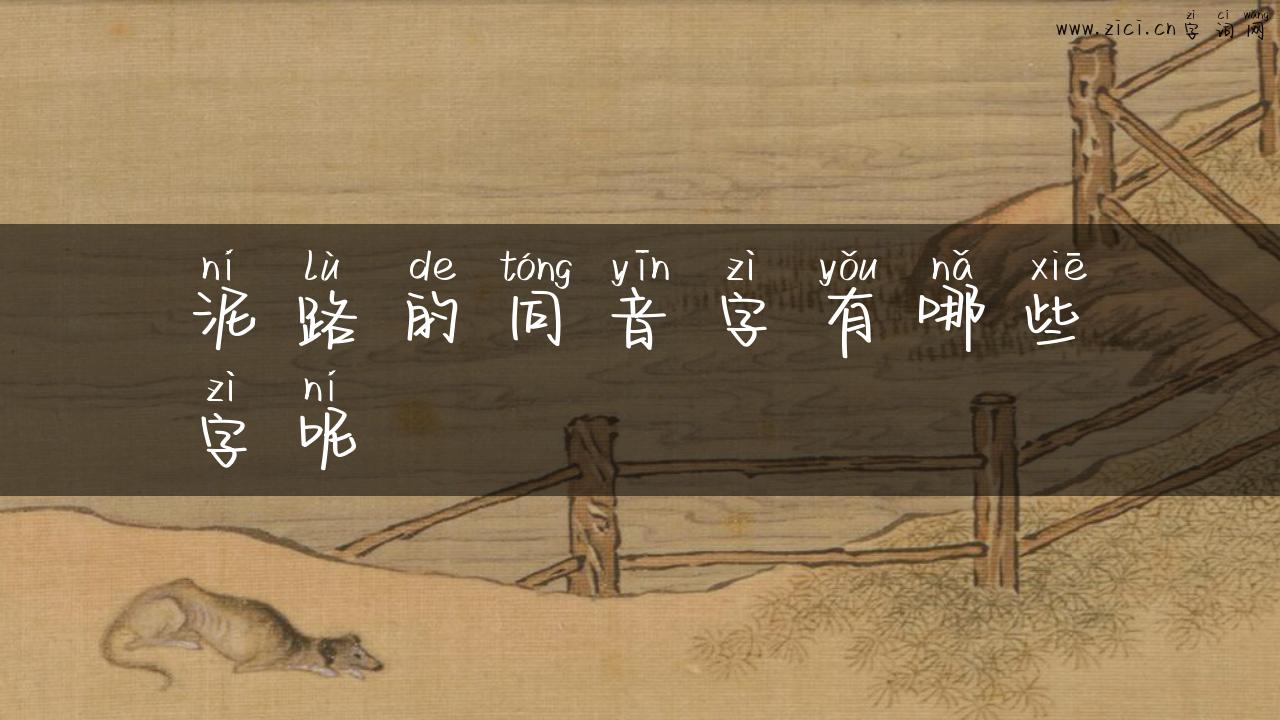 zì cí wǎng
www.zici.cn 字词网
ní lù de tóng yīn zì yǒu nǎ xiē
泥路的同音字有哪些
zì ní
字呢